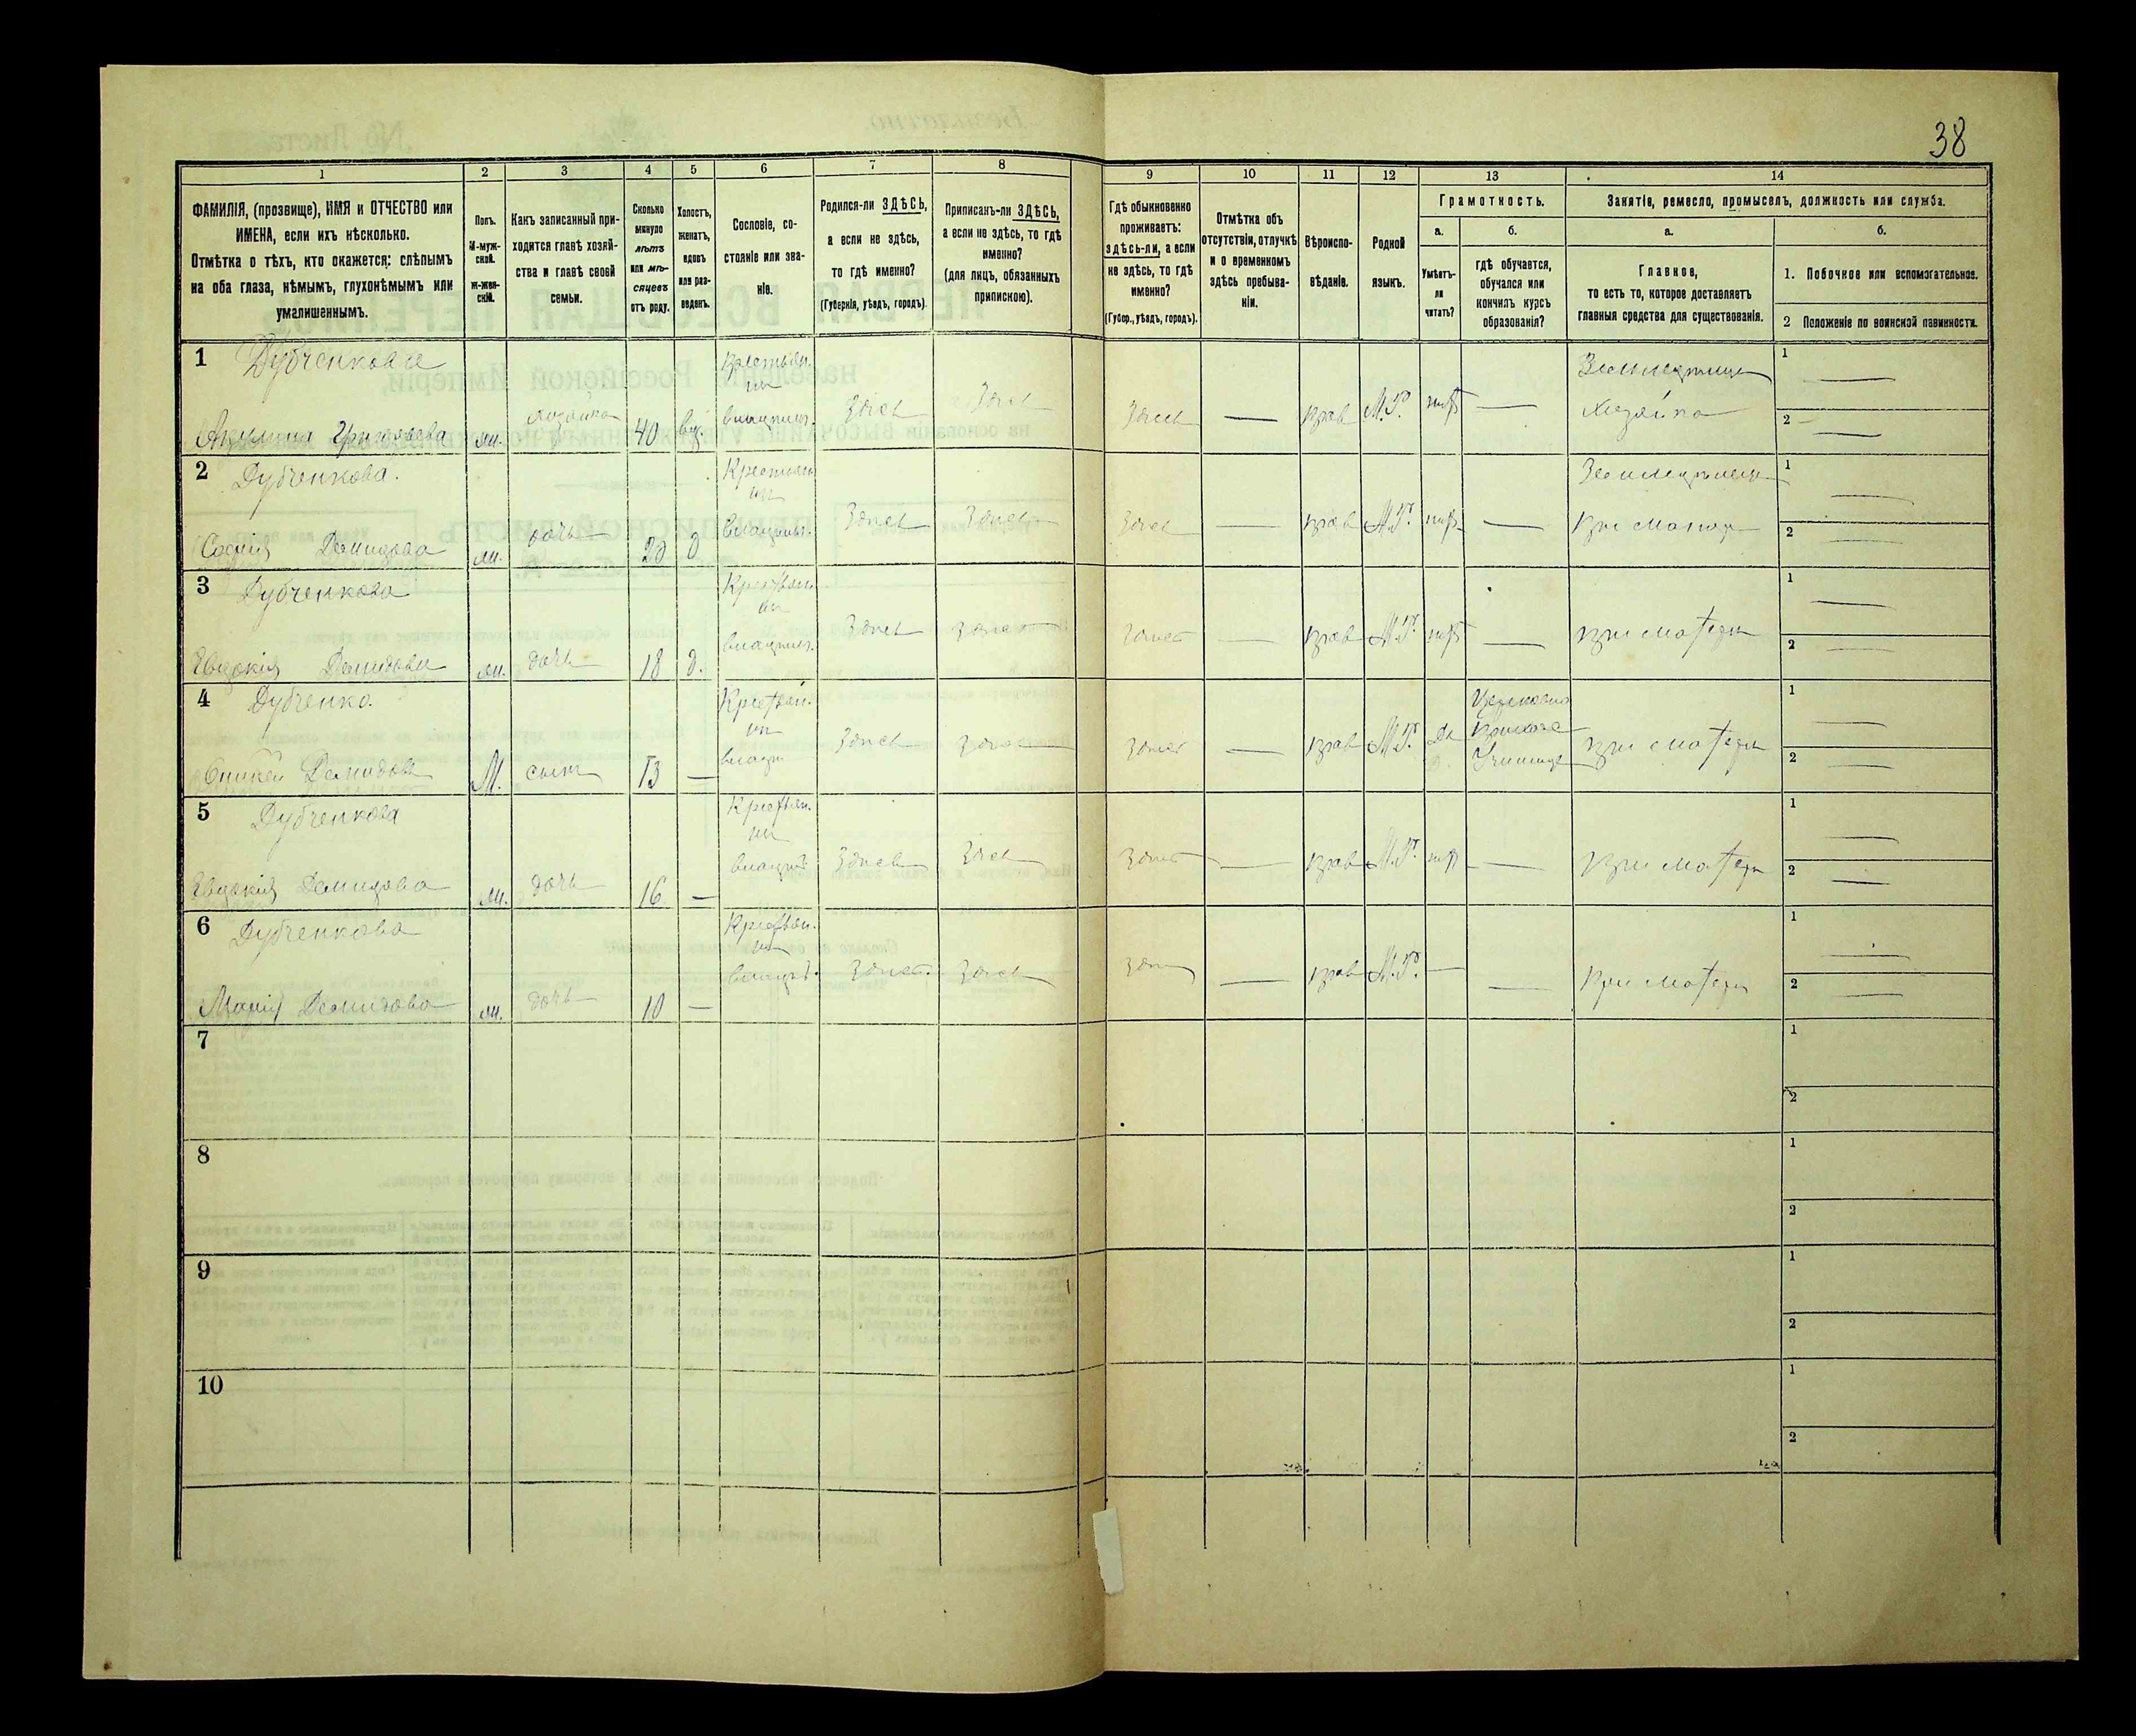 38
1
2
3
4
5
6
7
8
9
10
11
12
13
14
ФАМИЛІЯ, (прозвище), ИМЯ и ОТЧЕСТВО или
ИМЕНА, если ихъ нѣсколько.
Отмѣтка о тѣхъ, кто окажется: слѣпымъ
на оба глаза, нѣмымъ, глухонѣмымъ или
умалишеннымъ.
Полъ.
М-муж-
ской.
Ж-жен-
скій.
Какъ записанный при-
ходится главѣ хозяй-
ства и главѣ своей
семьи.
Сколько
минуло
лѣтъ
или мѣ-
сяцевъ
отъ роду.
Холостъ,
женатъ,
вдовъ
или раз-
веденъ.
Сословіе, со-
стояніе или зва-
ніе.
Родился-ли ЗДѢСЬ,
а если не здѣсь,
то гдѣ именно?
(Губернія, уѣздъ, городъ).
Приписанъ-ли ЗДѢСЬ,
а если не здѣсь, то гдѣ
именно?
(для лицъ, обязанныхъ
припискою).
Гдѣ обыкновенно
проживаетъ:
здѣсь-ли, а если
не здѣсь, то гдѣ
именно?
(Губер., уѣздъ, городъ).
Отмѣтка объ
отсутствіи, отлучкѣ
и о временномъ
здѣсь пребыва-
ніи.
Вѣроиспо-
вѣданіе.
Родной
языкъ.
Грамотность.
а.
Умѣетъ-
ли
читать?
б.
гдѣ обучается,
обучался или
кончилъ курсъ
образованія?
Занятіе, ремесло, промыселъ, должность или служба.
а.
Главное,
то есть то, которое доставляетъ
главныя средства для существованія.
б.
1. Побочное или вспомогательное.
2 Положеніе по воинской повинности.
1 Дубченкова
Акулина Григорьева ж. хозяйка 40 вд. Здесь Здесь Здесь — прав М.Р. нѣт — Хозяйка
2 Дубченкова.
Софія Демидова ж. дочь д Здесь Здесь Здесь — прав М.Р. нѣт —
3 Дубченкова
Евдокія Демидова ж. дочь 18 д. Здесь Здесь Здесь — прав М.Р. нѣт — при матери
4 Дубченко.
Демидовъ М. сынъ 13 — Здесь Здесь Здесь — прав М.Р. Да при матери
5 Дубченкова
Евдокія Демидова ж. дочь 16 — Здесь Здесь Здесь — прав М.Р. нѣт — при матери
6 Дубченкова
Марія Демидова ж. дочь 10 — Здесь Здесь — прав М.Р. — — при матери
7
8
9
10